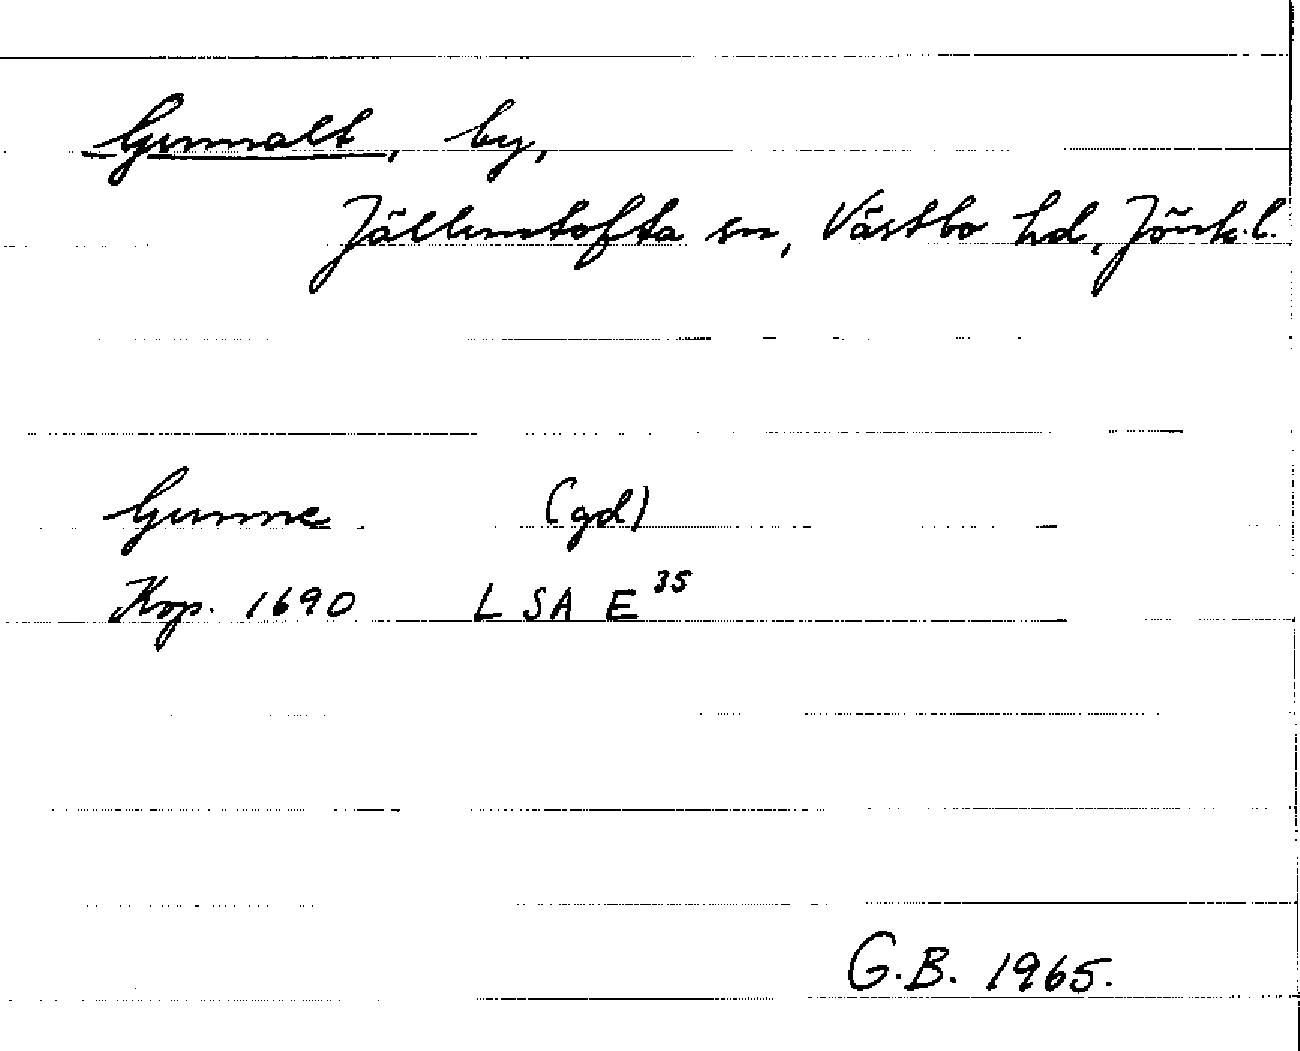 Gunnalt, by,
Jälluntofta sn, Västbo hd, Jönk.l.
Gunne (gd)
Kop. 1690 LSA E 35
G.B. 1965.